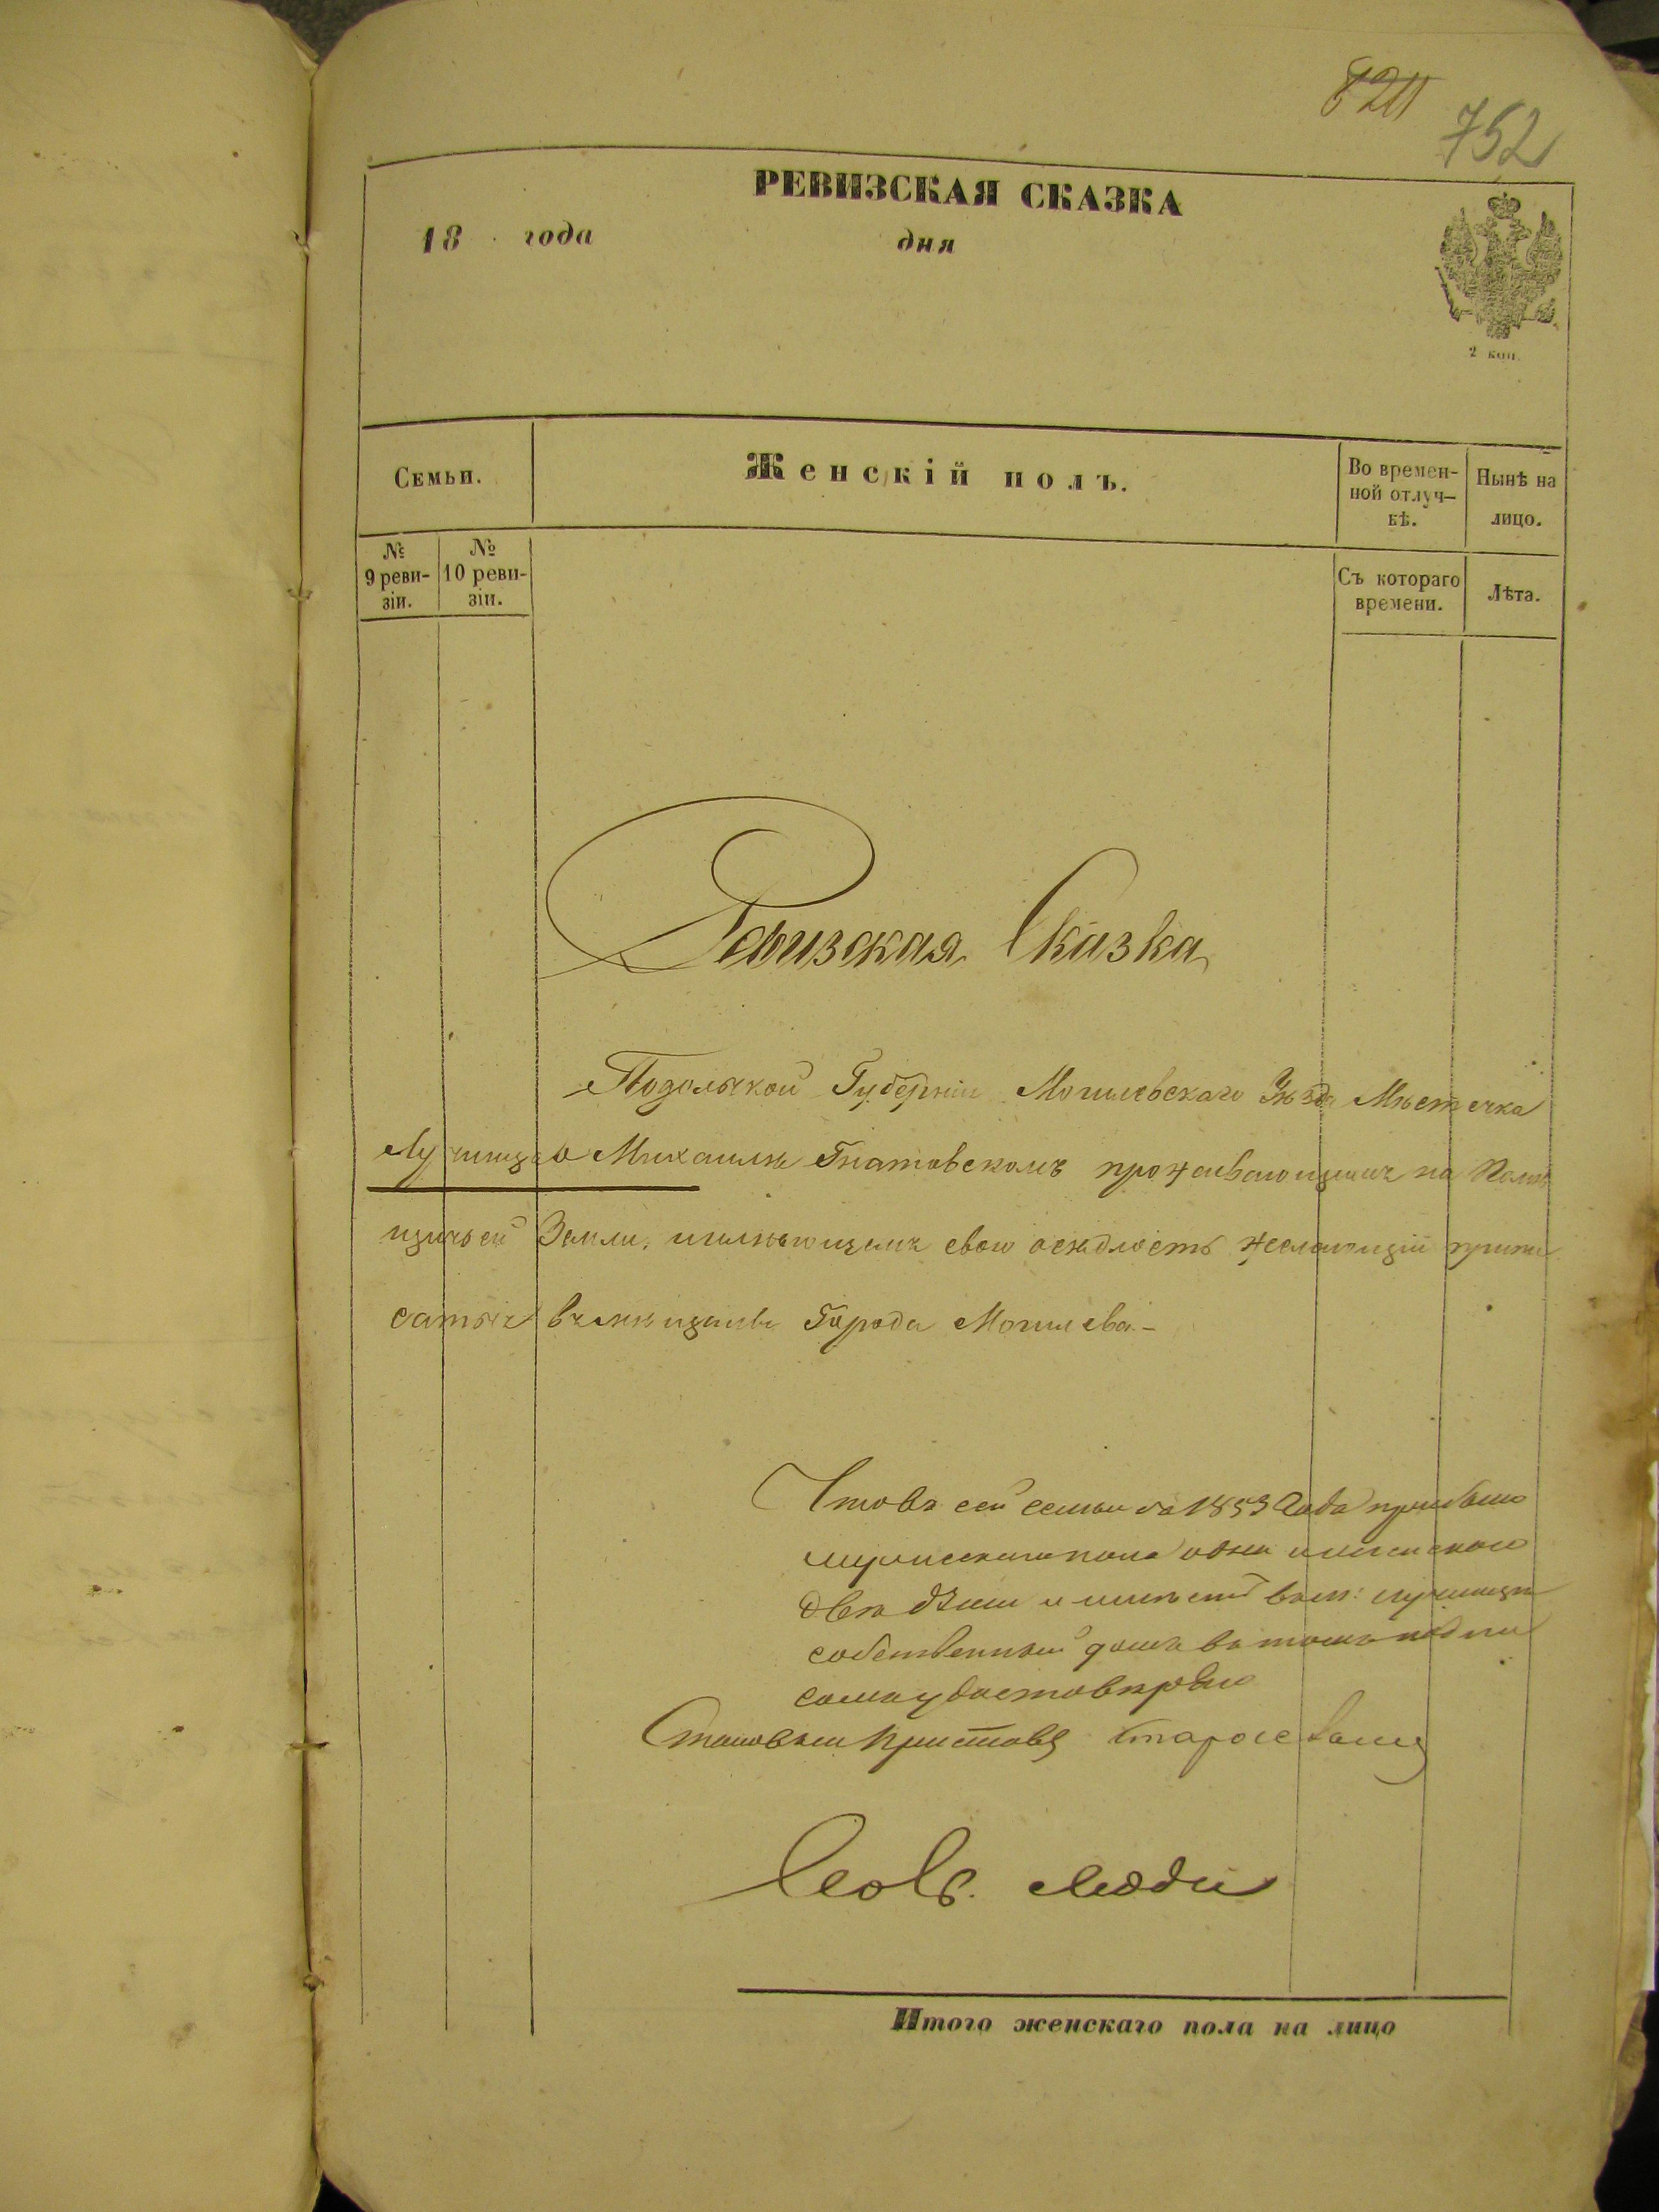 820
752
РЕВИЗСКАЯ СКАЗКА
18 года дня
2 коп.
Семьи.
Женскій полъ.
Во времен-
ной отлуч-
кѣ.
Нынѣ на
лицо.
№
9 реви-
зіи.
№
10 реви-
зіи.
Съ котораго
времени.
Лѣта.
Ревизская Сказка
Подольской Губерніи Могилевскаго Уѣзда Мѣстечка
Лучинца о Михаилѣ Гнатовскомъ проживающимъ на Помѣ
щичьей Земли, имѣющемъ свою осѣдлость желающій припи
саться въ мѣщане Города Могилева.-
Что въ сей семьи до 1853 Года прибыло
мужескаго пола одна и женскаго
двѣ души и имѣетъ въ м: Лучинцѣ
собственный домъ въ томъ подпи
сомъ удостовѣряю
Становый Приставъ
люди
Итого женскаго пола на лицо